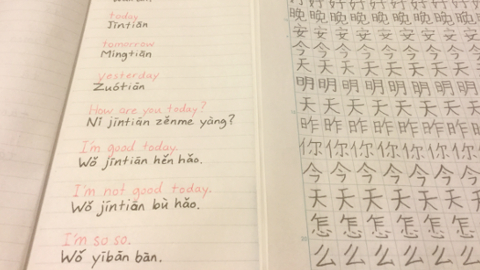 today
Jīntiān
tomorrow
Míngtiān
yesterday
Zuótiān
How are you today?
Nǐ jīntiān zěnme yàng?
I'm good today.
Wǒ jīntiān hěn hǎo.
I'm not good today.
Wǒ jīntiān bù hǎo.
I'm so so.
Wǒ yībān bān.
好好好好好好好
晚晚晚晚晚晚晚
安安安安安安安
今今今今今今今
天天天天天天天
明明明明明明明
天天天天天天天
昨昨昨昨昨昨昨
你你你你你你你
今今今今今今今
天天天天天天
怎怎怎怎怎怎
么么么么么么